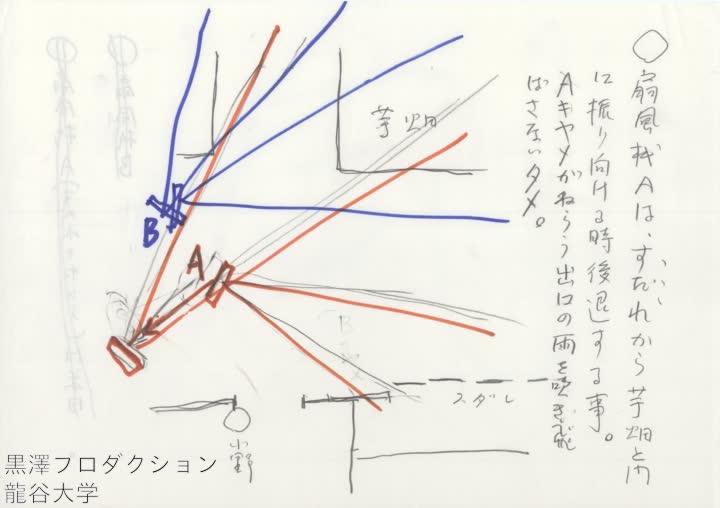 ○扇風機Aは、すだれから芋畑と内
に振り向ける時後退する事。
Aキャメがねらう出口の雨を吹き飛
ばさないタメ。
芋畑
B
A
スダレ
小野
黒澤プロダクション
龍谷大学